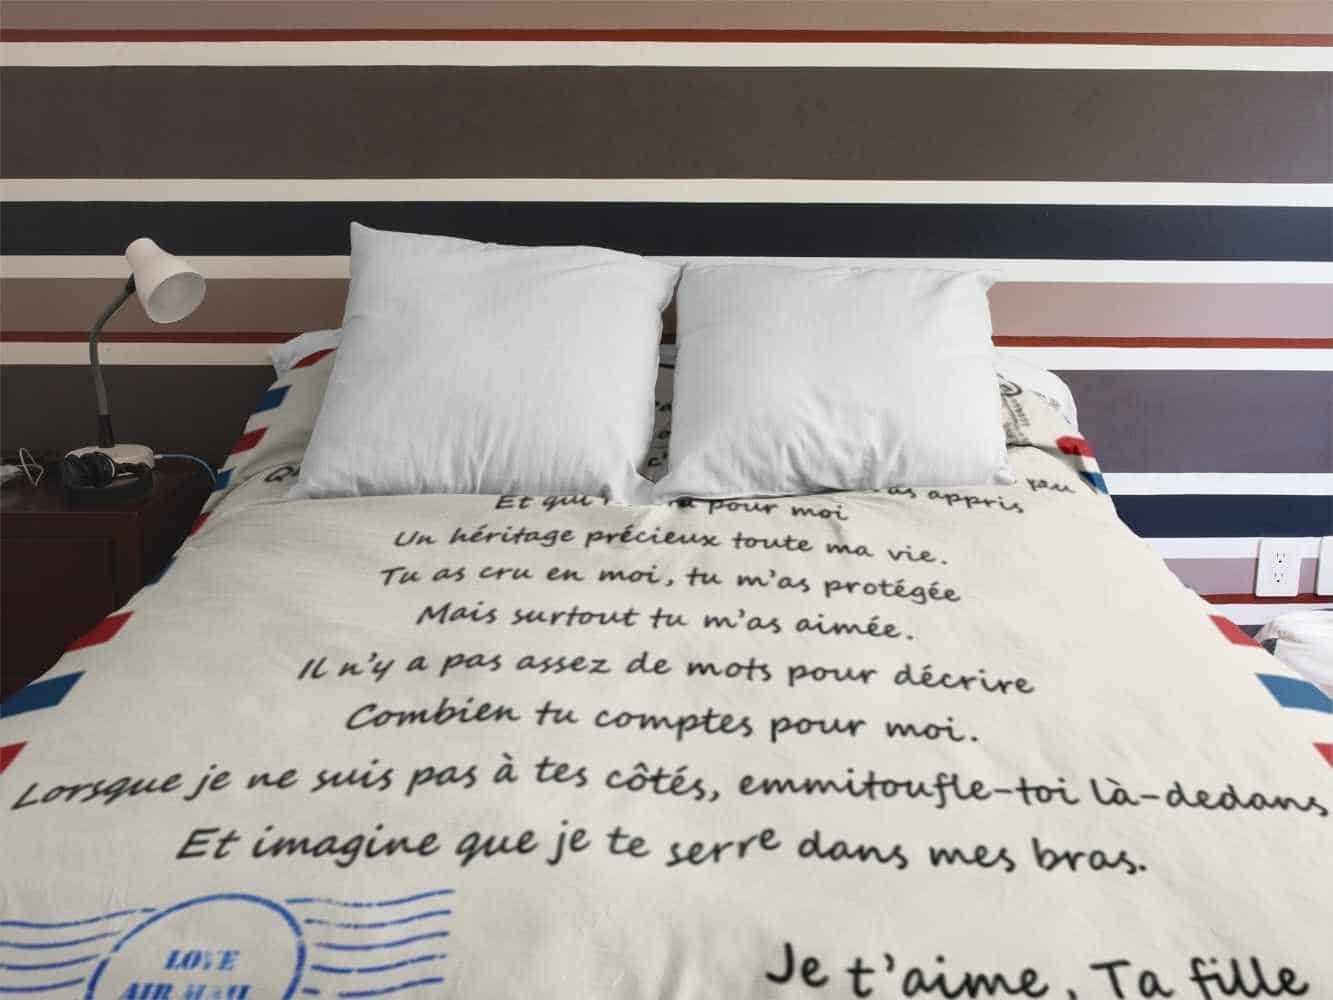 peu
as appris
Et qui pour moi
Un héritage précieux toute ma vie.
Tu as cru en moi, tu m'as protégée
Mais surtout tu m'as aimée.
Il n'y a pas assez de mots pour décrire
Combien tu comptes pour moi.
Lorsque je ne suis pas à tes côtés, emmitoufle-toi là-dedans
Et imagine que je te serre dans mes bras.
Je t'aime, Ta fille
LOVE
AIR MAIL